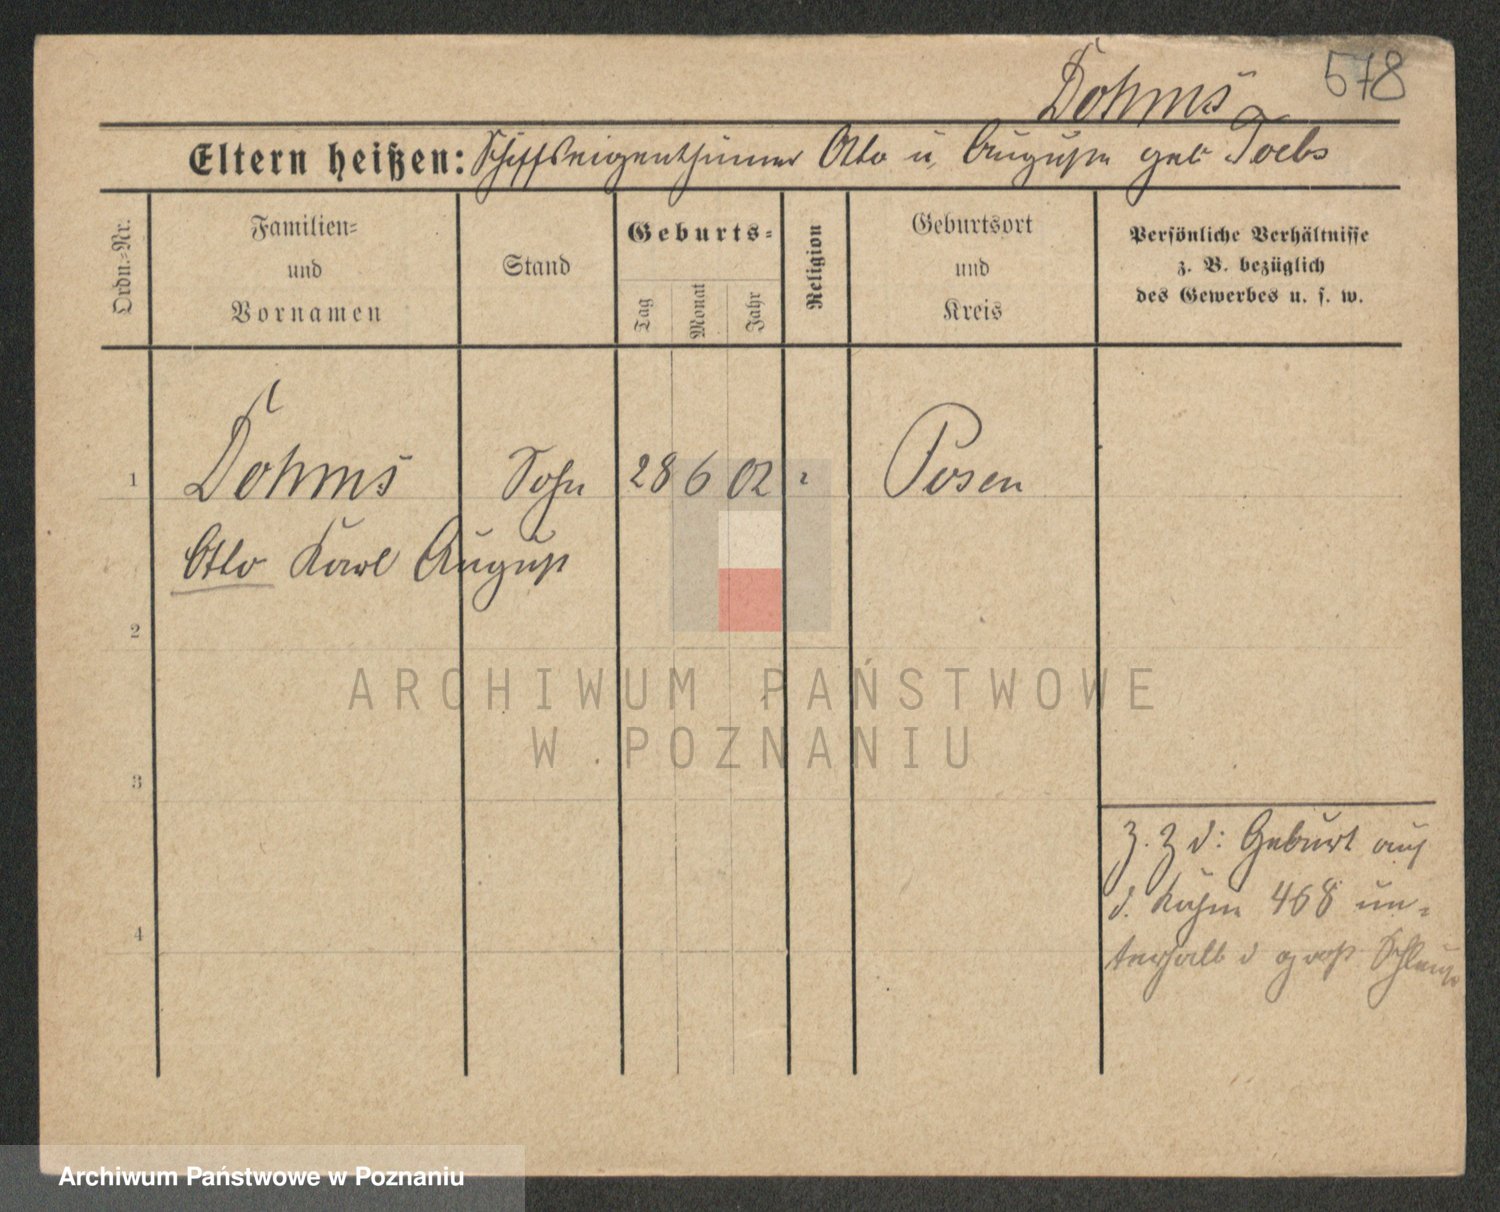 578
Dohms
Eltern heißen: Schiffseigenthümer Otto u. Auguste geb Toebs
Ordn.-Nr.
Familien-
und
Vornamen
Stand
Geburts-
Tag
Monat
Jahr
Religion
Geburtsort
und
Kreis
Persönliche Verhältnisse
z. B. bezüglich
des Gewerbes u. s. w.
1 Dohms Sohn 28 6 02 Posen
Otto Karl August
2
ARCHIWUM PAŃSTWOWE
W POZNANIU
3
z. Z d: Geburt auf
d. Kahn 468 un-
4
terhalb d groß Schleuse
Archiwum Państwowe w Poznaniu